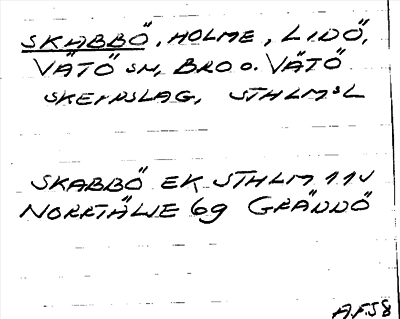 SKABBÖ, HOLME, LIDÖ,
VÄTÖ SN, BRO O. VÄTÖ
SKEPPSLAG, STHLMS L
SKABBÖ EK STHLM 11V
NORRTÄLJE 69 GRÄDDÖ
A.F.58